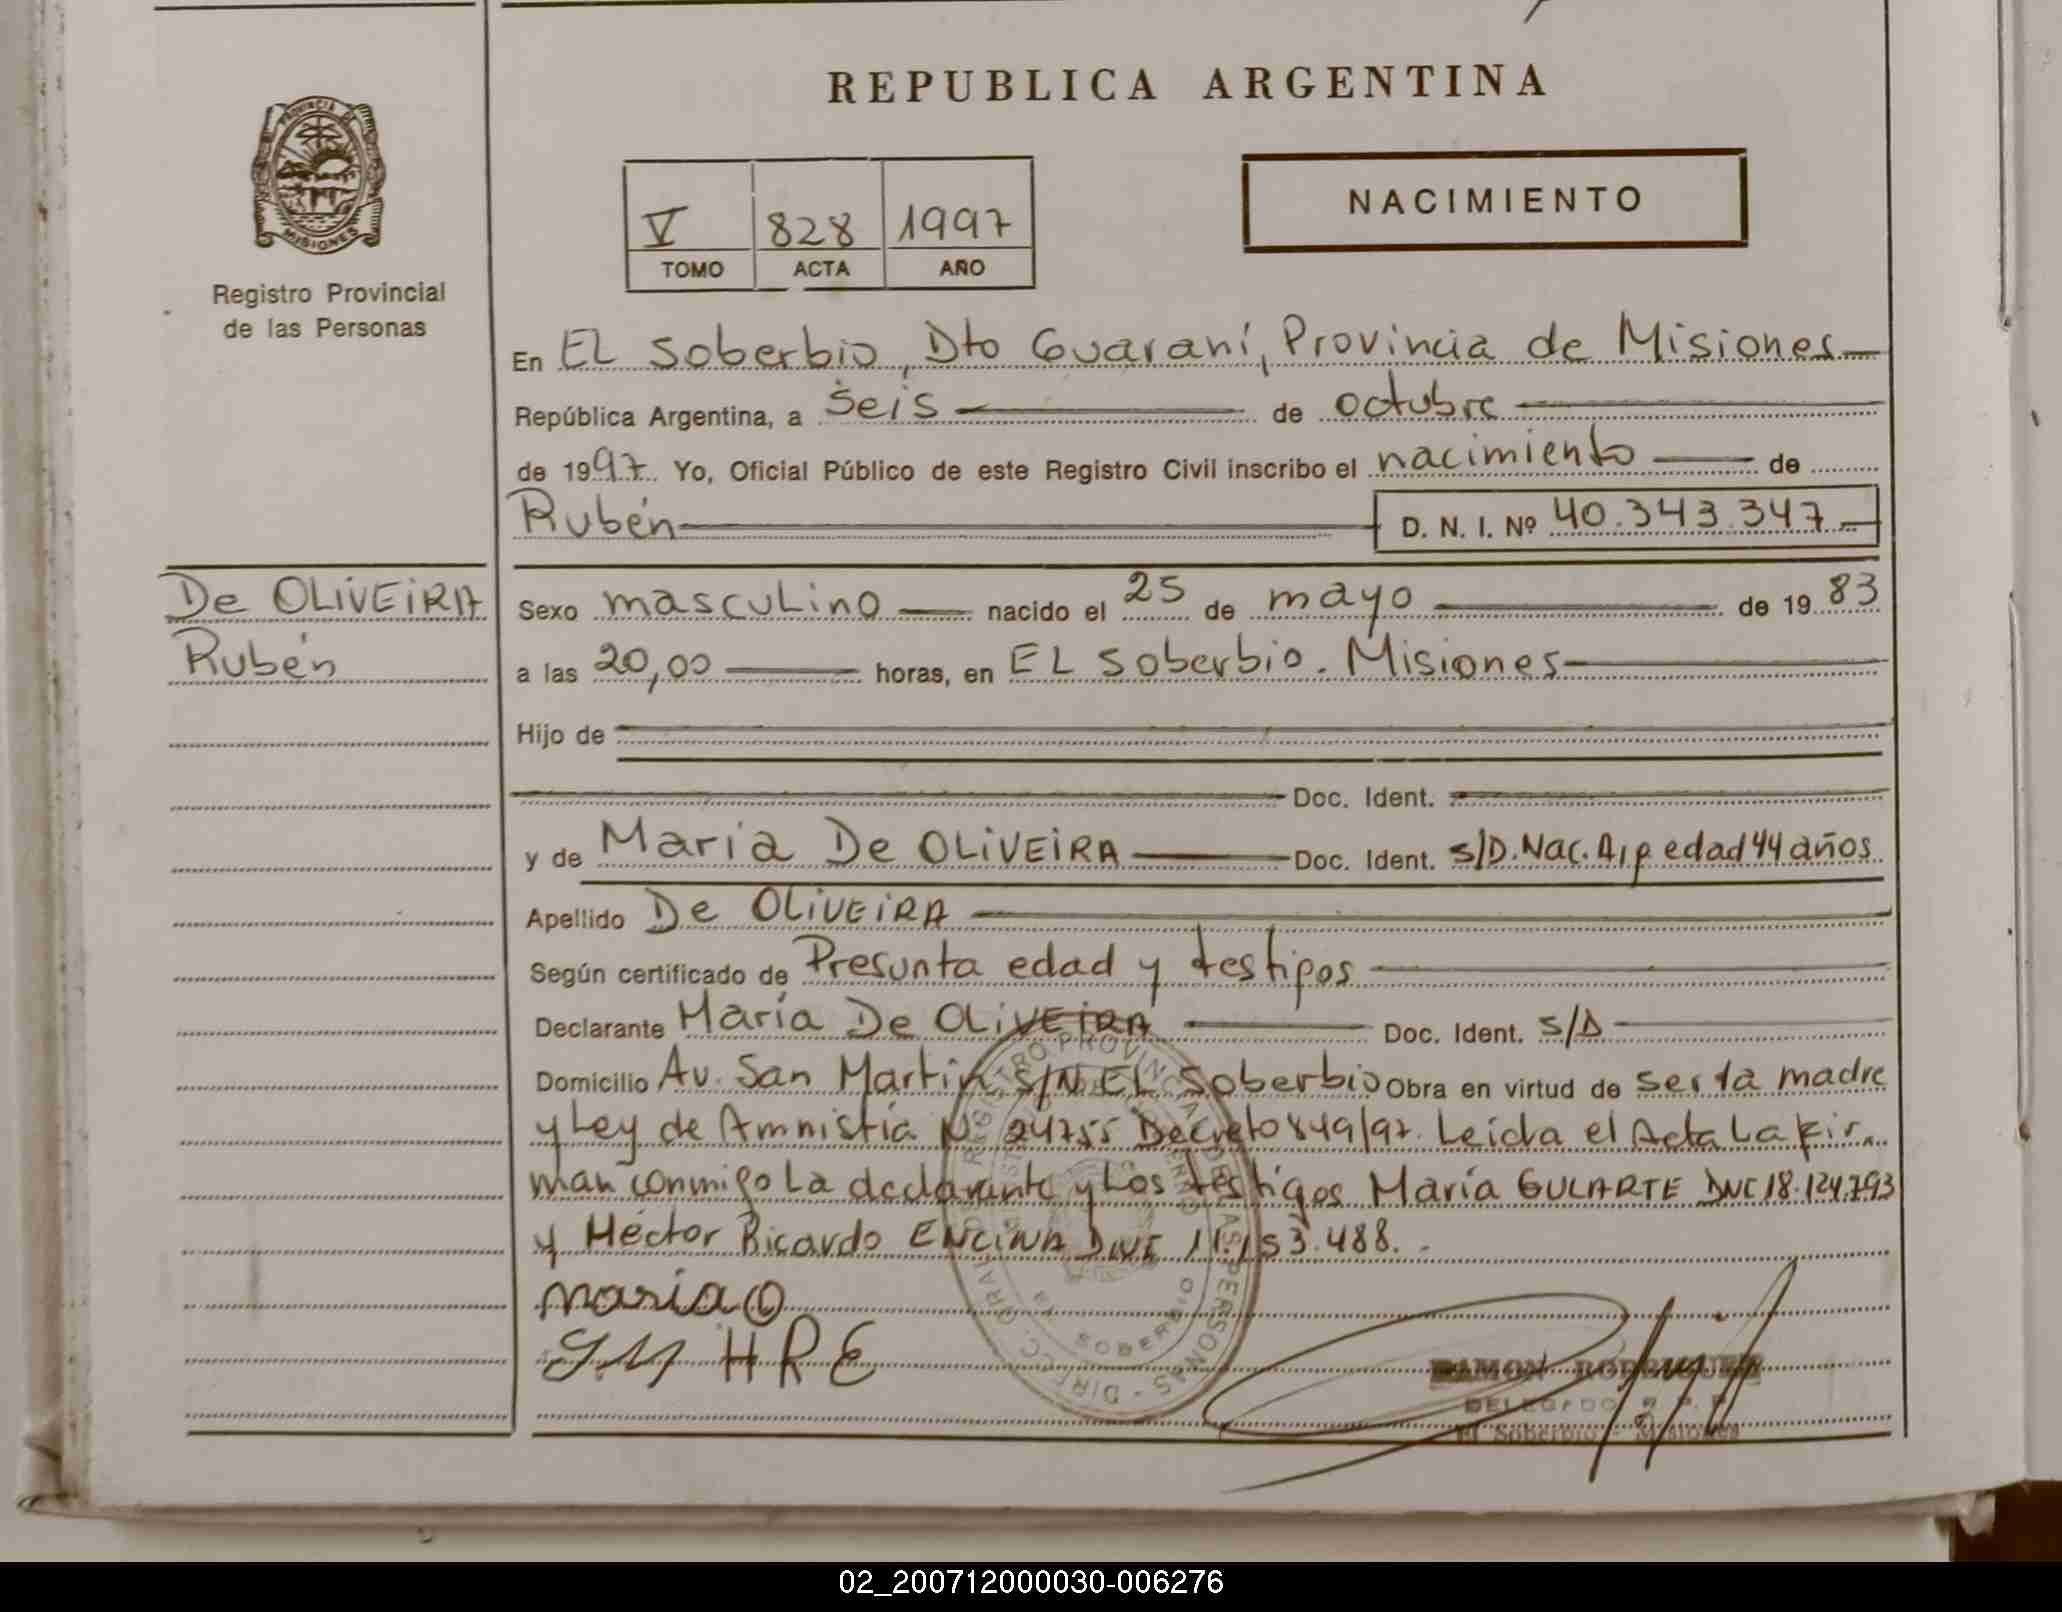 REPUBLICA ARGENTINA
NACIMIENTO
PROVINCIA DE
MISIONES
Registro Provincial
de las Personas
V 828 1997
TOMO ACTA AÑO
En EL Soberbio, Dto Guaraní, Provincia de Misiones
República Argentina, a Seis de octubre
de 1997. Yo, Oficial Público de este Registro Civil inscribo el nacimiento de
Rubén D. N. I. Nº 40.343.347
De OLIVEIRA
Rubén
Sexo masculino nacido el 25 de mayo de 1983
a las 20,00 horas, en EL Soberbio. Misiones
Hijo de
Doc. Ident.
y de María De OLIVEIRA Doc. Ident. S/D. Nac. A, p edad 44 años
Apellido De OLIVEIRA
Según certificado de Presunta edad y testigos
Declarante María De OLIVEIRA Doc. Ident. S/D
Domicilio Av. San Martin S/N EL Soberbio Obra en virtud de ser la madre
y Ley de Amnistía Nº 24755 Decreto 849/97. Leída el Acta La fir
man conmigo La declarante y Los testigos María GULARTE DNI 18.124.793
y Héctor Ricardo ENCINA DNI 11.153.488.
maria O
HRE
RAMON RODRIGUEZ
DELEGADO R. P.
El Soberbio - Misiones
SOBERBIO
02_200712000030-006276